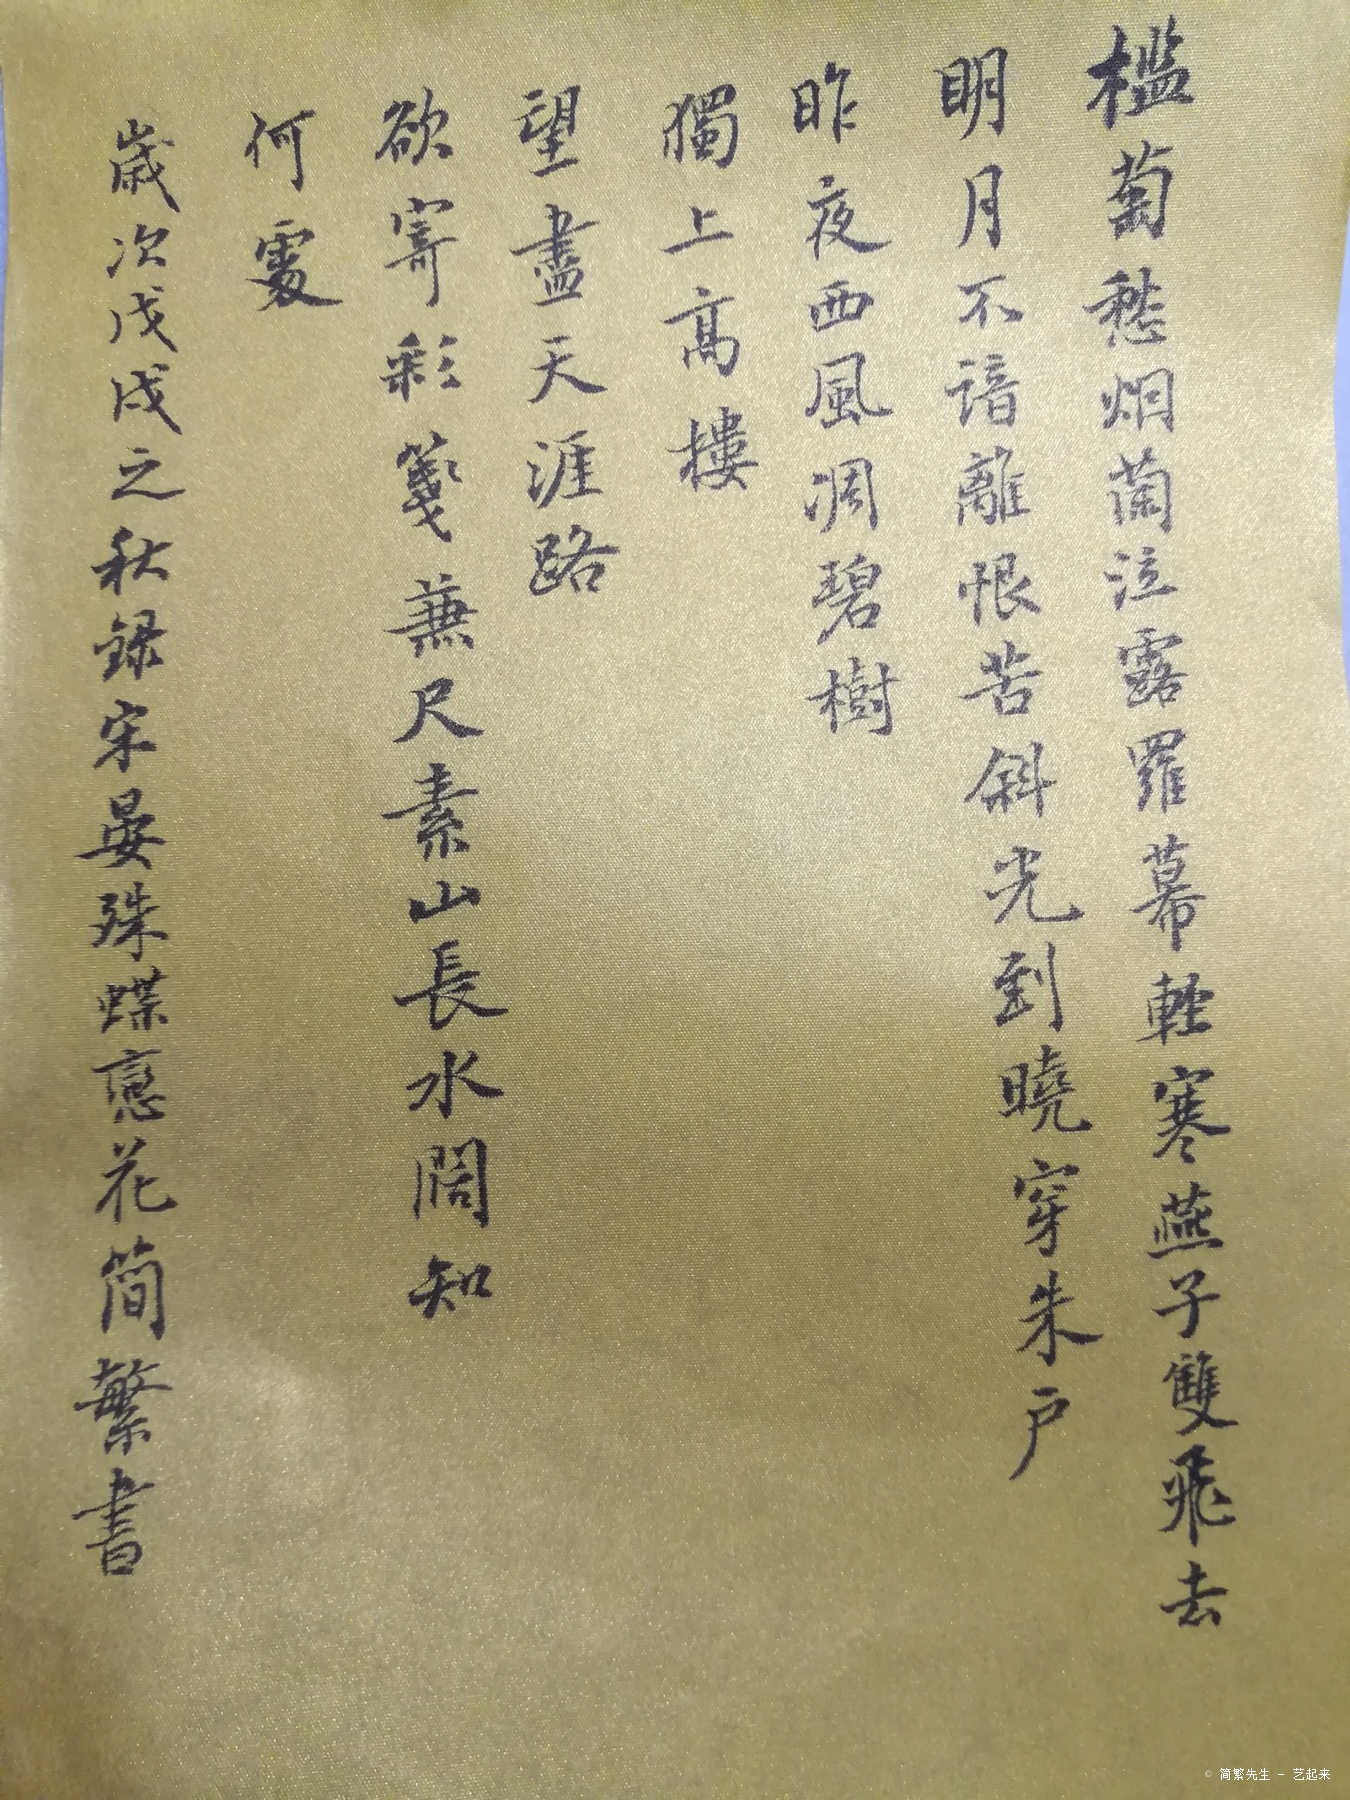 檻菊愁烟蘭泣露羅幕輕寒燕子雙飛去
明月不諳離恨苦斜光到曉穿朱户
昨夜西風凋碧樹
獨上高樓
望盡天涯路
欲寄彩箋兼尺素山長水闊知
何處
歲次戊戌之秋録宋晏殊蝶戀花简繁書
© 简繁先生 - 艺起来